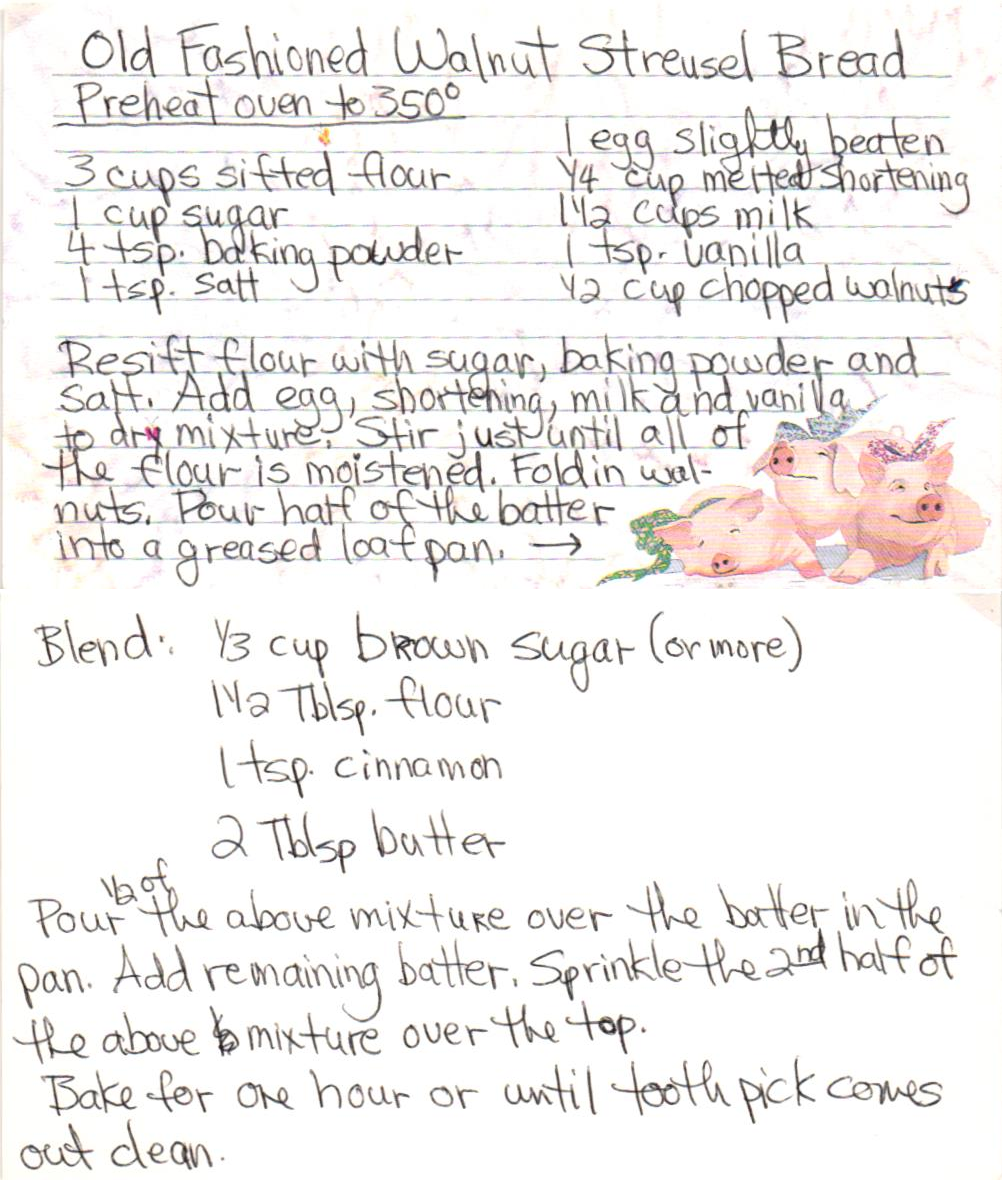 Old Fashioned Walnut Streusel Bread
Preheat oven to 350°
3 cups sifted flour
1 cup sugar
4 tsp. baking powder
1 tsp. salt
1 egg slightly beaten
1/4 cup melted shortening
1 1/2 cups milk
1 tsp. vanilla
1/2 cup chopped walnuts
Resift flour with sugar, baking powder and
salt. Add egg, shortening, milk and vanilla
to dry mixture. Stir just until all of
the flour is moistened. Fold in wal-
nuts. Pour half of the batter
into a greased loaf pan. →
Blend: 1/3 cup brown sugar (or more)
1 1/2 Tblsp. flour
1 tsp. cinnamon
2 Tblsp butter
Pour 1/2 of the above mixture over the batter in the
pan. Add remaining batter. Sprinkle the 2nd half of
the above mixture over the top.
Bake for one hour or until tooth pick comes
out clean.